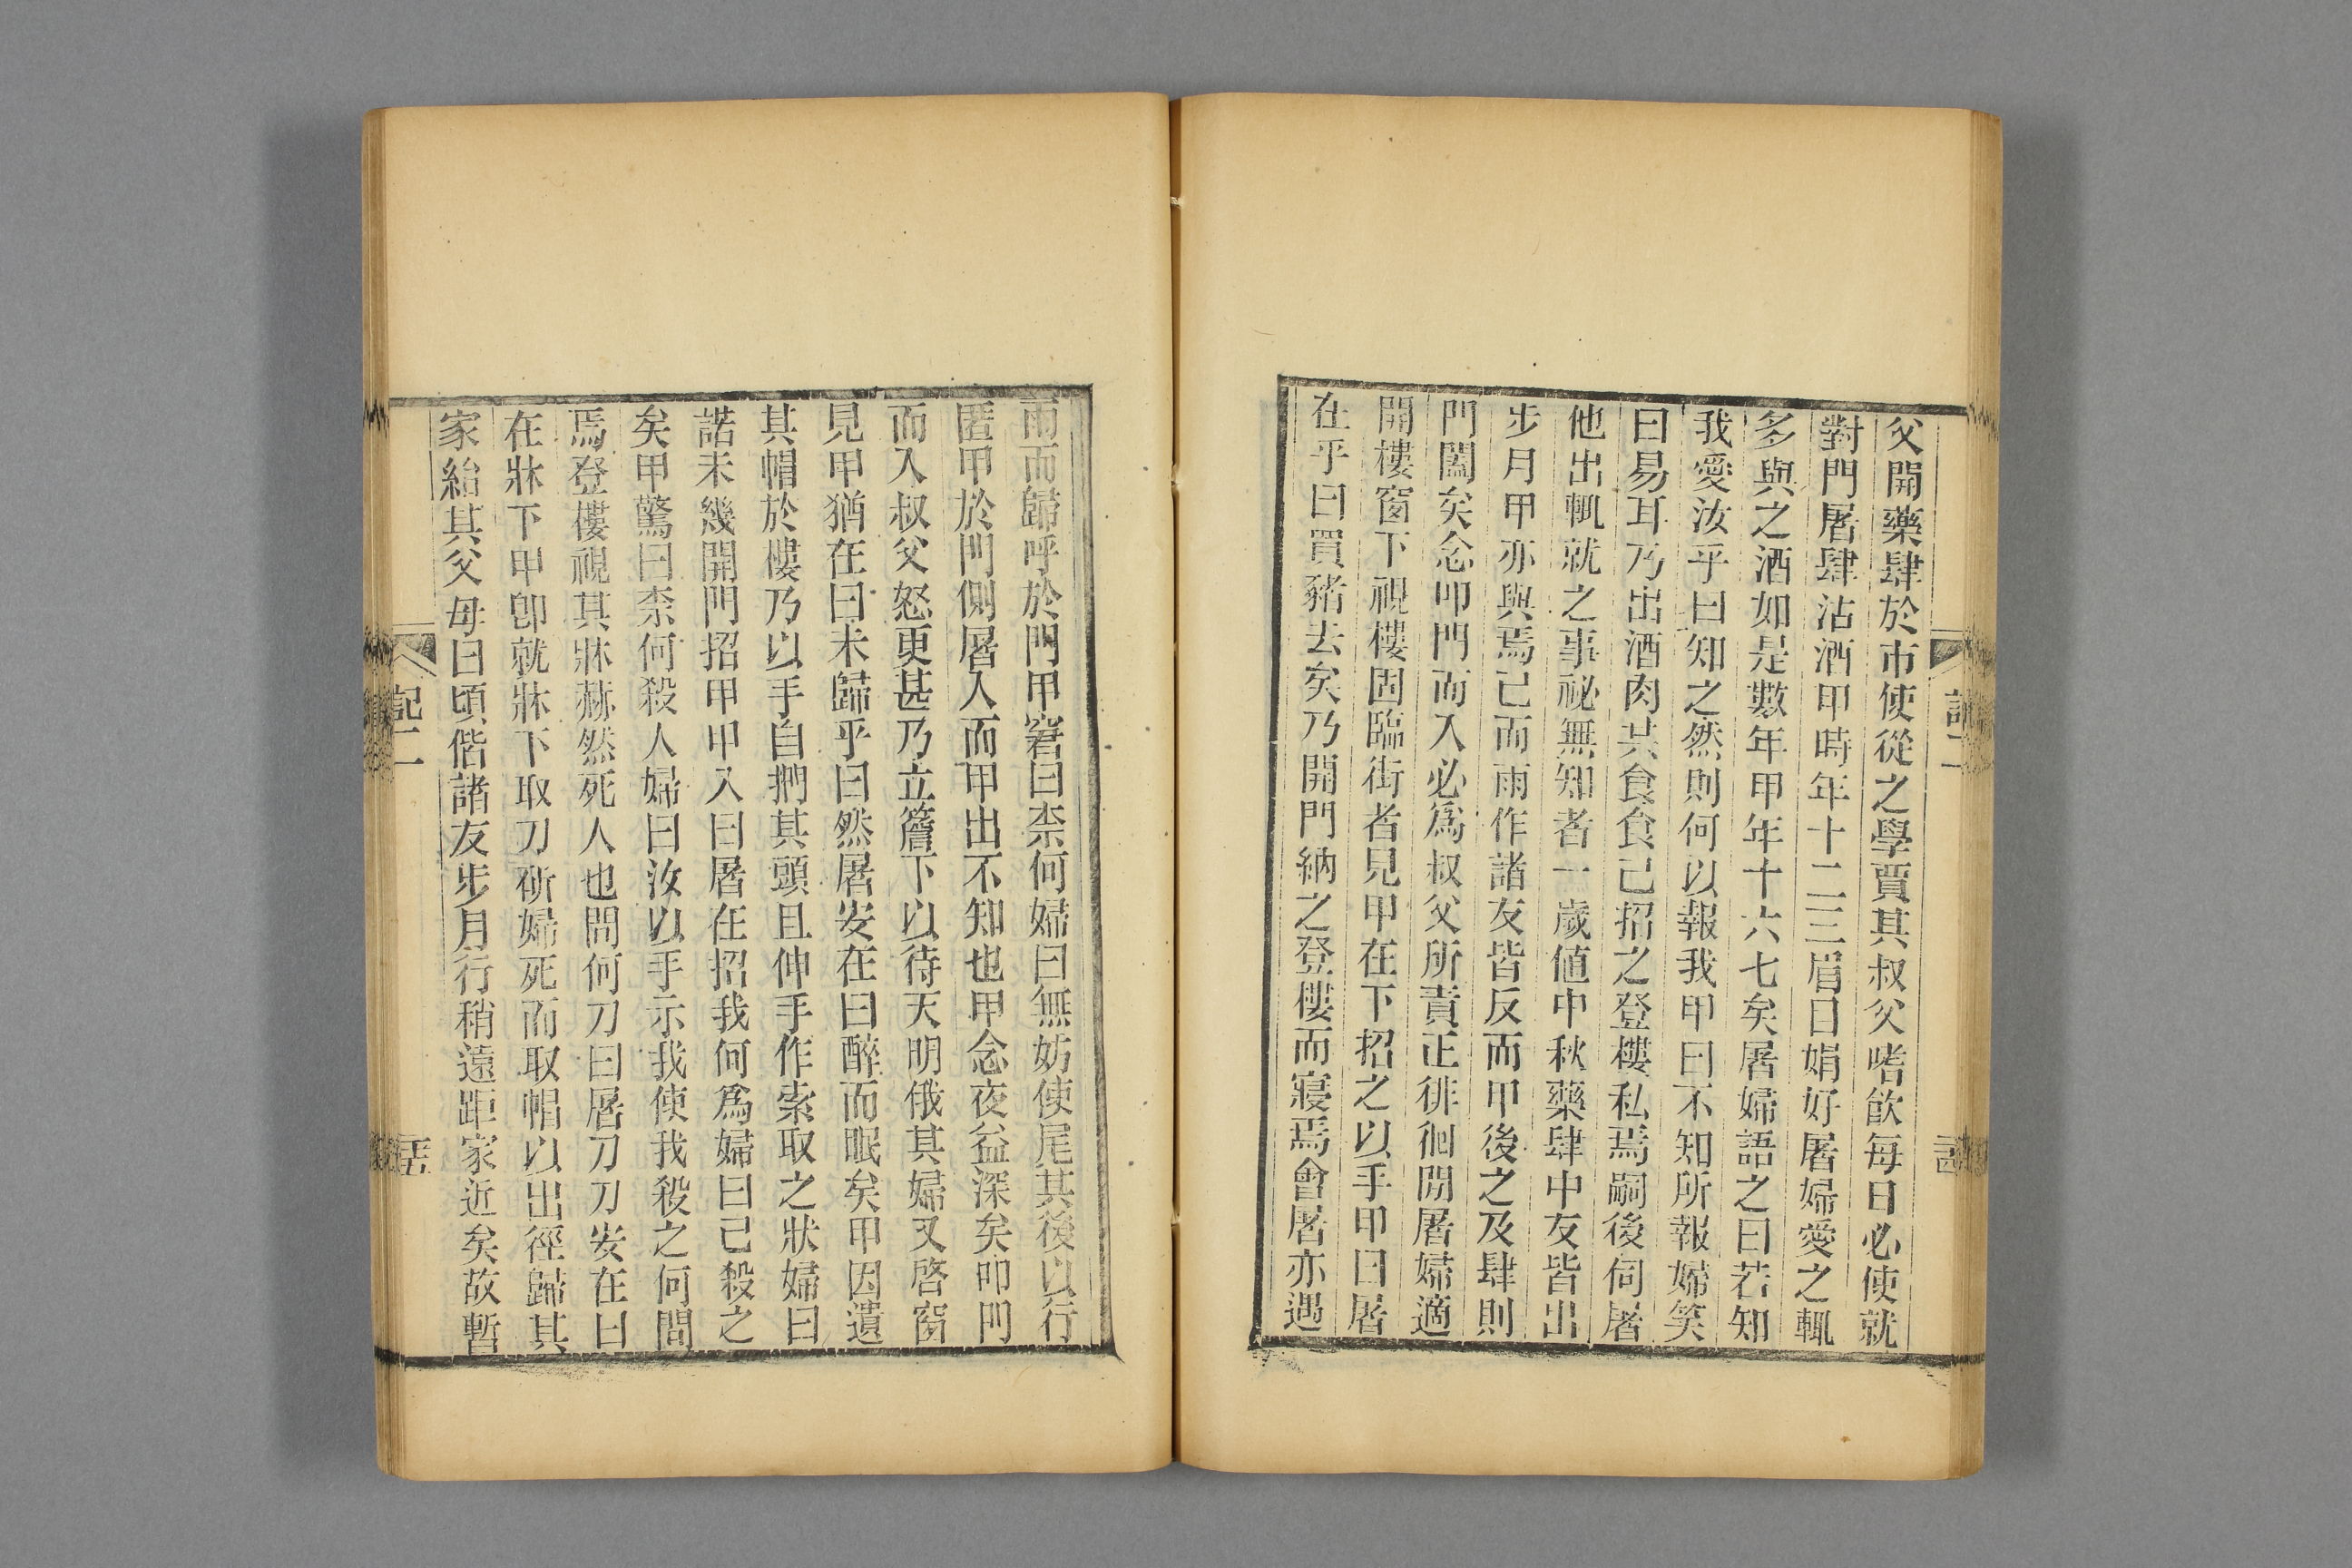 父開藥肆於市使從之學賈其叔父嗜飲每日必使就
對門屠肆沽酒甲時年十二三眉目娟好屠婦愛之輒
多與之酒如是數年甲年十六七矣屠婦語之曰若知
我愛汝乎曰知之然則何以報我甲曰不知所報婦笑
曰易耳乃出酒肉共食食已招之登樓私焉嗣後伺屠
他出輒就之事祕無知者一歲値中秋藥肆中友皆出
步月甲亦與焉已而雨作諸友皆反而甲後之及肆則
門闔矣念叩門而入必爲叔父所責正徘徊閒屠婦適
開樓窗下視樓固臨街者見甲在下招之以手甲曰屠
在乎曰買豬去矣乃開門納之登樓而寢焉會屠亦遇
雨而歸呼於門甲窘曰柰何婦曰無妨使尾其後以行
匿甲於門側屠入而甲出不知也甲念夜益深矣叩門
而入叔父怒更甚乃立簷下以待天明俄其婦又啓窗
見甲猶在曰未歸乎曰然屠安在曰醉而眠矣甲因遺
其帽於樓乃以手自捫其頭且伸手作索取之狀婦曰
諾未幾開門招甲甲入曰屠在招我何爲婦曰已殺之
矣甲驚曰柰何殺人婦曰汝以手示我使我殺之何問
焉登樓視其牀赫然死人也問何刀曰屠刀刀安在曰
在牀下甲卽就牀下取刀斫婦死而取帽以出徑歸其
家紿其父母曰頃偕諸友步月行稍遠距家近矣故暫
記二